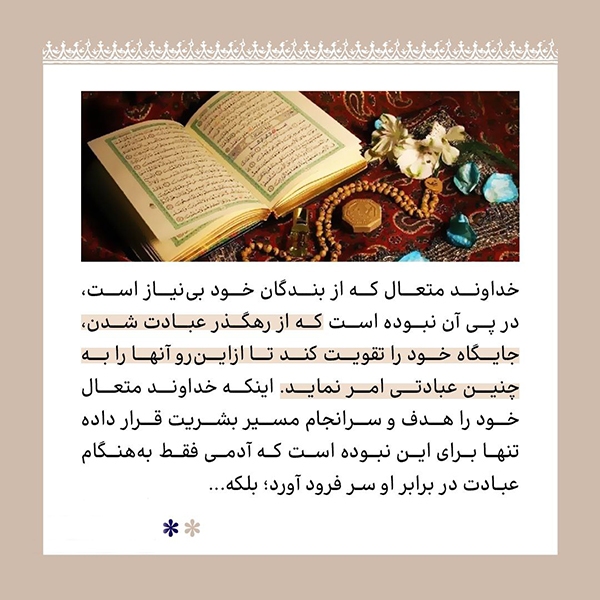 خداوند متعال که از بندگان خود بی‌نیاز است،
در پی آن نبوده است که از رهگذر عبادت شدن،
جایگاه خود را تقویت کند تا ازاین‌رو آنها را به
چنین عبادتی امر نماید. اینکه خداوند متعال
خود را هدف و سرانجام مسیر بشریت قرار داده
تنها برای این نبوده است که آدمی فقط به‌هنگام
عبادت در برابر او سر فرود آورد؛ بلکه...